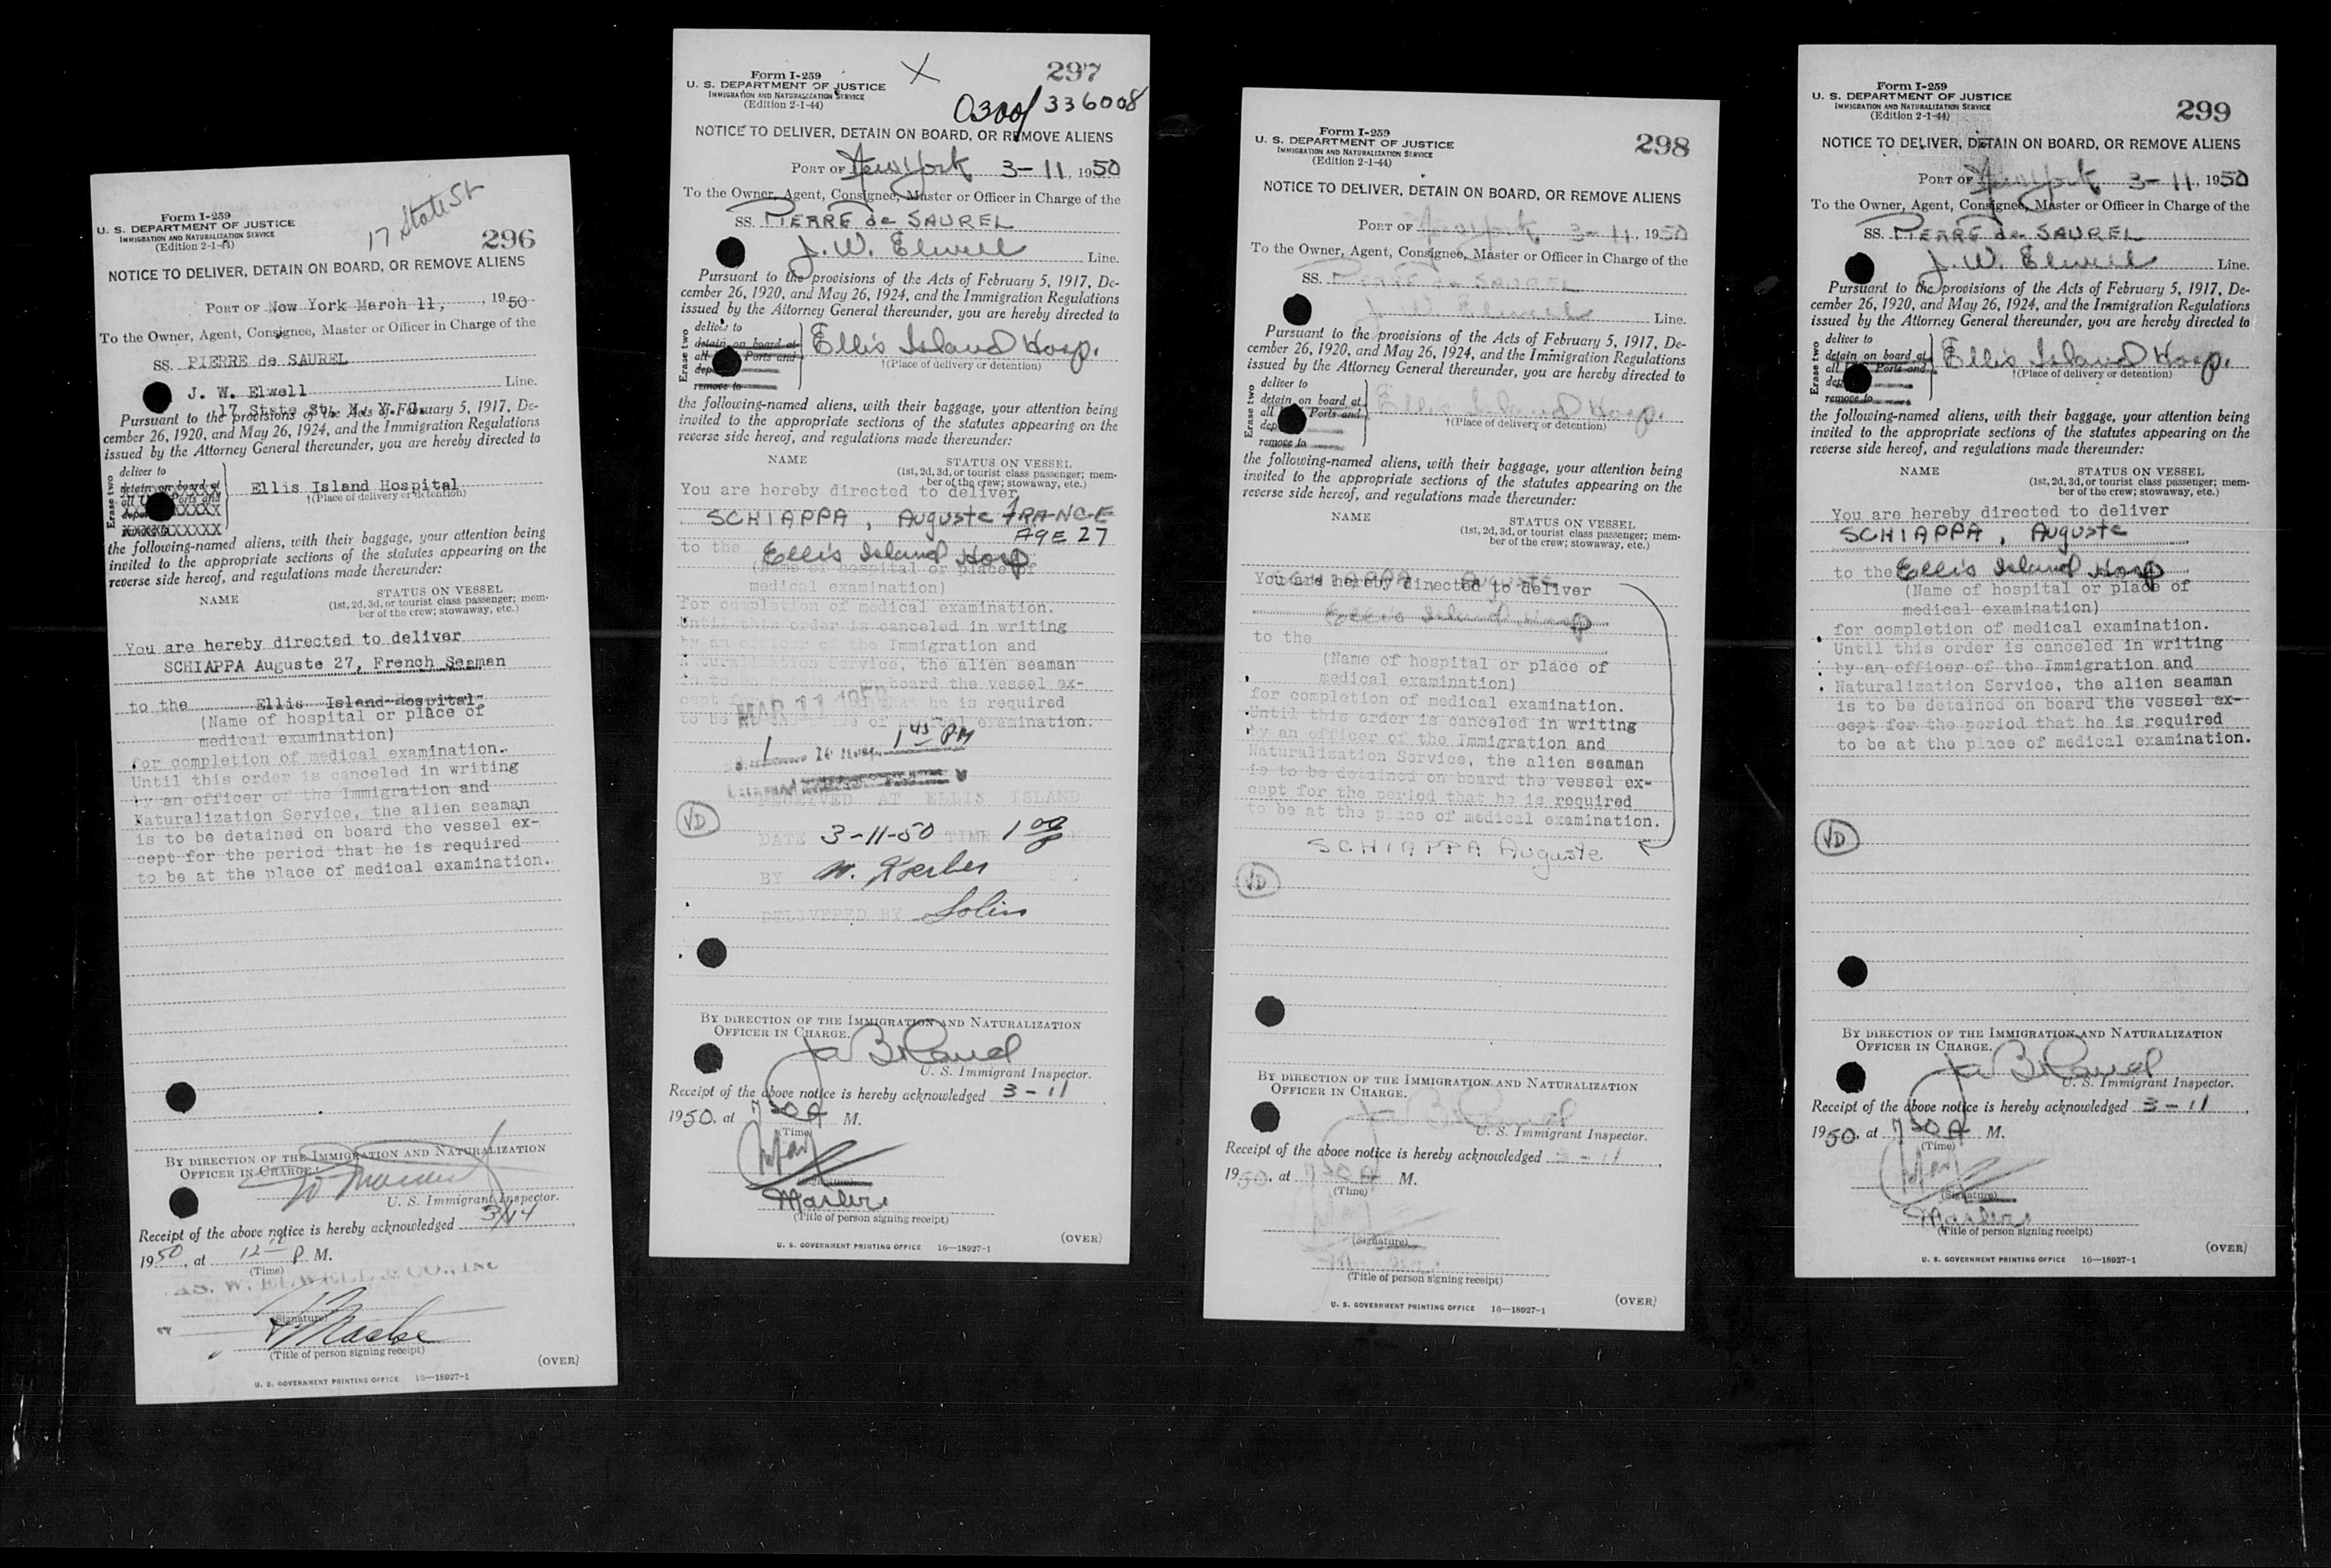 17 State St
Form I-259
U. S. DEPARTMENT OF JUSTICE
IMMIGRATION AND NATURALIZATION SERVICE
(Edition 2-1-44)
296
NOTICE TO DELIVER, DETAIN ON BOARD, OR REMOVE ALIENS
PORT OF New York March 11, , 1950
To the Owner, Agent, Consignee, Master or Officer in Charge of the
SS. PIERRE de SAUREL
J. W. Elwell Line.
17 State St. N. Y. C.
Pursuant to the provisions of the Acts of February 5, 1917, De-
cember 26, 1920, and May 26, 1924, and the Immigration Regulations
issued by the Attorney General thereunder, you are hereby directed to
Erase two
deliver to
detain on board at
all Ports and
XXXXXXXXXX
Ellis Island Hospital
†(Place of delivery or detention)
the following-named aliens, with their baggage, your attention being
invited to the appropriate sections of the statutes appearing on the
reverse side hereof, and regulations made thereunder:
NAME STATUS ON VESSEL
(1st, 2d, 3d, or tourist class passenger; mem-
ber of the crew; stowaway, etc.)
You are hereby directed to deliver
SCHIAPPA Auguste 27, French Seaman
to the Ellis Island Hospital
(Name of hospital or place of
medical examination)
for completion of medical examination.
Until this order is canceled in writing
by an officer of the Immigration and
Naturalization Service, the alien seaman
is to be detained on board the vessel ex-
cept for the period that he is required
to be at the place of medical examination.
BY DIRECTION OF THE IMMIGRATION AND NATURALIZATION
OFFICER IN CHARGE.
U. S. Immigrant Inspector.
Receipt of the above notice is hereby acknowledged 3/14 ,
1950, at 12 P. M.
(Time)
AS. W. ELWELL & CO., INC
(Signature)
(Title of person signing receipt)
(OVER)
U. S. GOVERNMENT PRINTING OFFICE 16—18927-1
X
297
Form I-259
U. S. DEPARTMENT OF JUSTICE
IMMIGRATION AND NATURALIZATION SERVICE
(Edition 2-1-44)
0300/336008
NOTICE TO DELIVER, DETAIN ON BOARD, OR REMOVE ALIENS
PORT OF New York 3-11, 1950
To the Owner, Agent, Consignee, Master or Officer in Charge of the
SS. PIERRE de SAUREL
J. W. Elwell Line.
Pursuant to the provisions of the Acts of February 5, 1917, De-
cember 26, 1920, and May 26, 1924, and the Immigration Regulations
issued by the Attorney General thereunder, you are hereby directed to
Erase two
deliver to
detain on board at
all Ports and
remove to
Ellis Island Hosp.
†(Place of delivery or detention)
the following-named aliens, with their baggage, your attention being
invited to the appropriate sections of the statutes appearing on the
reverse side hereof, and regulations made thereunder:
NAME STATUS ON VESSEL
(1st, 2d, 3d, or tourist class passenger; mem-
ber of the crew; stowaway, etc.)
You are hereby directed to deliver
SCHIAPPA, Auguste FRANCE
AgE 27
to the Ellis Island Hosp
(Name of hospital or place of
medical examination)
for completion of medical examination.
Until this order is canceled in writing
by an officer of the Immigration and
Naturalization Service, the alien seaman
is to be detained on board the vessel ex-
cept for the period that he is required
to be at the place of medical examination.
MAR 11 1950
1 45 PM
RECEIVED AT ELLIS ISLAND
VD
DATE 3-11-50 TIME 1 00 P M
BY
DELIVERED BY
BY DIRECTION OF THE IMMIGRATION AND NATURALIZATION
OFFICER IN CHARGE.
U. S. Immigrant Inspector.
Receipt of the above notice is hereby acknowledged 3-11 ,
1950, at 730 A M.
(Time)
(Signature)
Master
(Title of person signing receipt)
(OVER)
U. S. GOVERNMENT PRINTING OFFICE 16—18927-1
Form I-259
U. S. DEPARTMENT OF JUSTICE
IMMIGRATION AND NATURALIZATION SERVICE
(Edition 2-1-44)
298
NOTICE TO DELIVER, DETAIN ON BOARD, OR REMOVE ALIENS
PORT OF New York, 3-11, 1950
To the Owner, Agent, Consignee, Master or Officer in Charge of the
SS. PIERRE de SAUREL
J. W. Elwell Line.
Pursuant to the provisions of the Acts of February 5, 1917, De-
cember 26, 1920, and May 26, 1924, and the Immigration Regulations
issued by the Attorney General thereunder, you are hereby directed to
Erase two
deliver to
detain on board at
all Ports and
remove to
Ellis Island Hosp.
†(Place of delivery or detention)
the following-named aliens, with their baggage, your attention being
invited to the appropriate sections of the statutes appearing on the
reverse side hereof, and regulations made thereunder:
NAME STATUS ON VESSEL
(1st, 2d, 3d, or tourist class passenger; mem-
ber of the crew; stowaway, etc.)
SCHIAPPA Auguste
You are hereby directed to deliver
Ellis Island Hosp
to the
(Name of hospital or place of
medical examination)
for completion of medical examination.
Until this order is canceled in writing
by an officer of the Immigration and
Naturalization Service, the alien seaman
is to be detained on board the vessel ex-
cept for the period that he is required
to be at the place of medical examination.
SCHIAPPA Auguste
VD
BY DIRECTION OF THE IMMIGRATION AND NATURALIZATION
OFFICER IN CHARGE.
U. S. Immigrant Inspector.
Receipt of the above notice is hereby acknowledged 3-11 ,
1950, at 730 A M.
(Time)
(Signature)
(Title of person signing receipt)
(OVER)
U. S. GOVERNMENT PRINTING OFFICE 16—18927-1
Form I-259
U. S. DEPARTMENT OF JUSTICE
IMMIGRATION AND NATURALIZATION SERVICE
(Edition 2-1-44)
299
NOTICE TO DELIVER, DETAIN ON BOARD, OR REMOVE ALIENS
PORT OF New York 3-11, 1950
To the Owner, Agent, Consignee, Master or Officer in Charge of the
SS. PIERRE de SAUREL
J. W. Elwell Line.
Pursuant to the provisions of the Acts of February 5, 1917, De-
cember 26, 1920, and May 26, 1924, and the Immigration Regulations
issued by the Attorney General thereunder, you are hereby directed to
Erase two
deliver to
detain on board at
all Ports and
remove to
Ellis Island Hosp.
†(Place of delivery or detention)
the following-named aliens, with their baggage, your attention being
invited to the appropriate sections of the statutes appearing on the
reverse side hereof, and regulations made thereunder:
NAME STATUS ON VESSEL
(1st, 2d, 3d, or tourist class passenger; mem-
ber of the crew; stowaway, etc.)
You are hereby directed to deliver
SCHIAPPA, Auguste
to the Ellis Island Hosp
(Name of hospital or place of
medical examination)
for completion of medical examination.
Until this order is canceled in writing
by an officer of the Immigration and
Naturalization Service, the alien seaman
is to be detained on board the vessel ex-
cept for the period that he is required
to be at the place of medical examination.
VD
BY DIRECTION OF THE IMMIGRATION AND NATURALIZATION
OFFICER IN CHARGE.
U. S. Immigrant Inspector.
Receipt of the above notice is hereby acknowledged 3-11 ,
1950, at 730 A M.
(Time)
(Signature)
Master
(Title of person signing receipt)
(OVER)
U. S. GOVERNMENT PRINTING OFFICE 16—18927-1